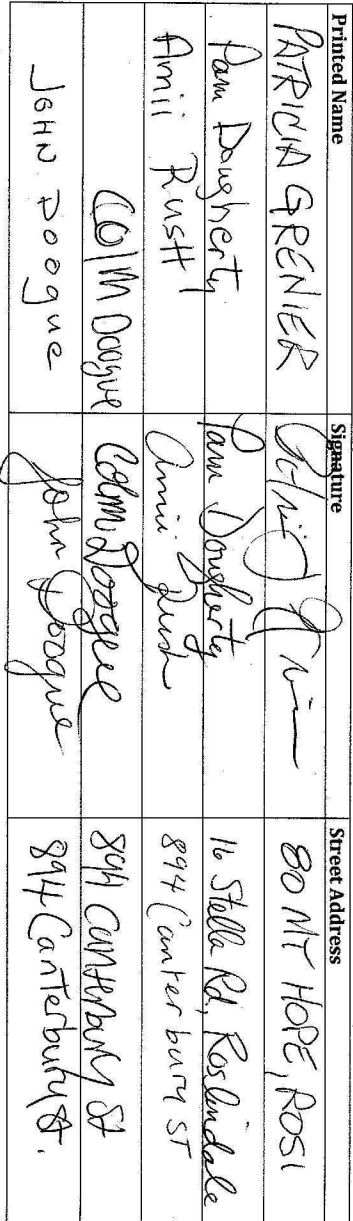 Printed Name Signature Street Address
PATRICIA GRENIER 80 MT HOPE, ROSI
Pam Dougherty Pam Dougherty 16 Stella Rd, Roslindale
Amii Rush Amii Rush 894 Canterbury ST
Colm Doogue Colm Doogue 894 Canterbury St
JOHN DOOGUE John Doogue 894 Canterbury St.